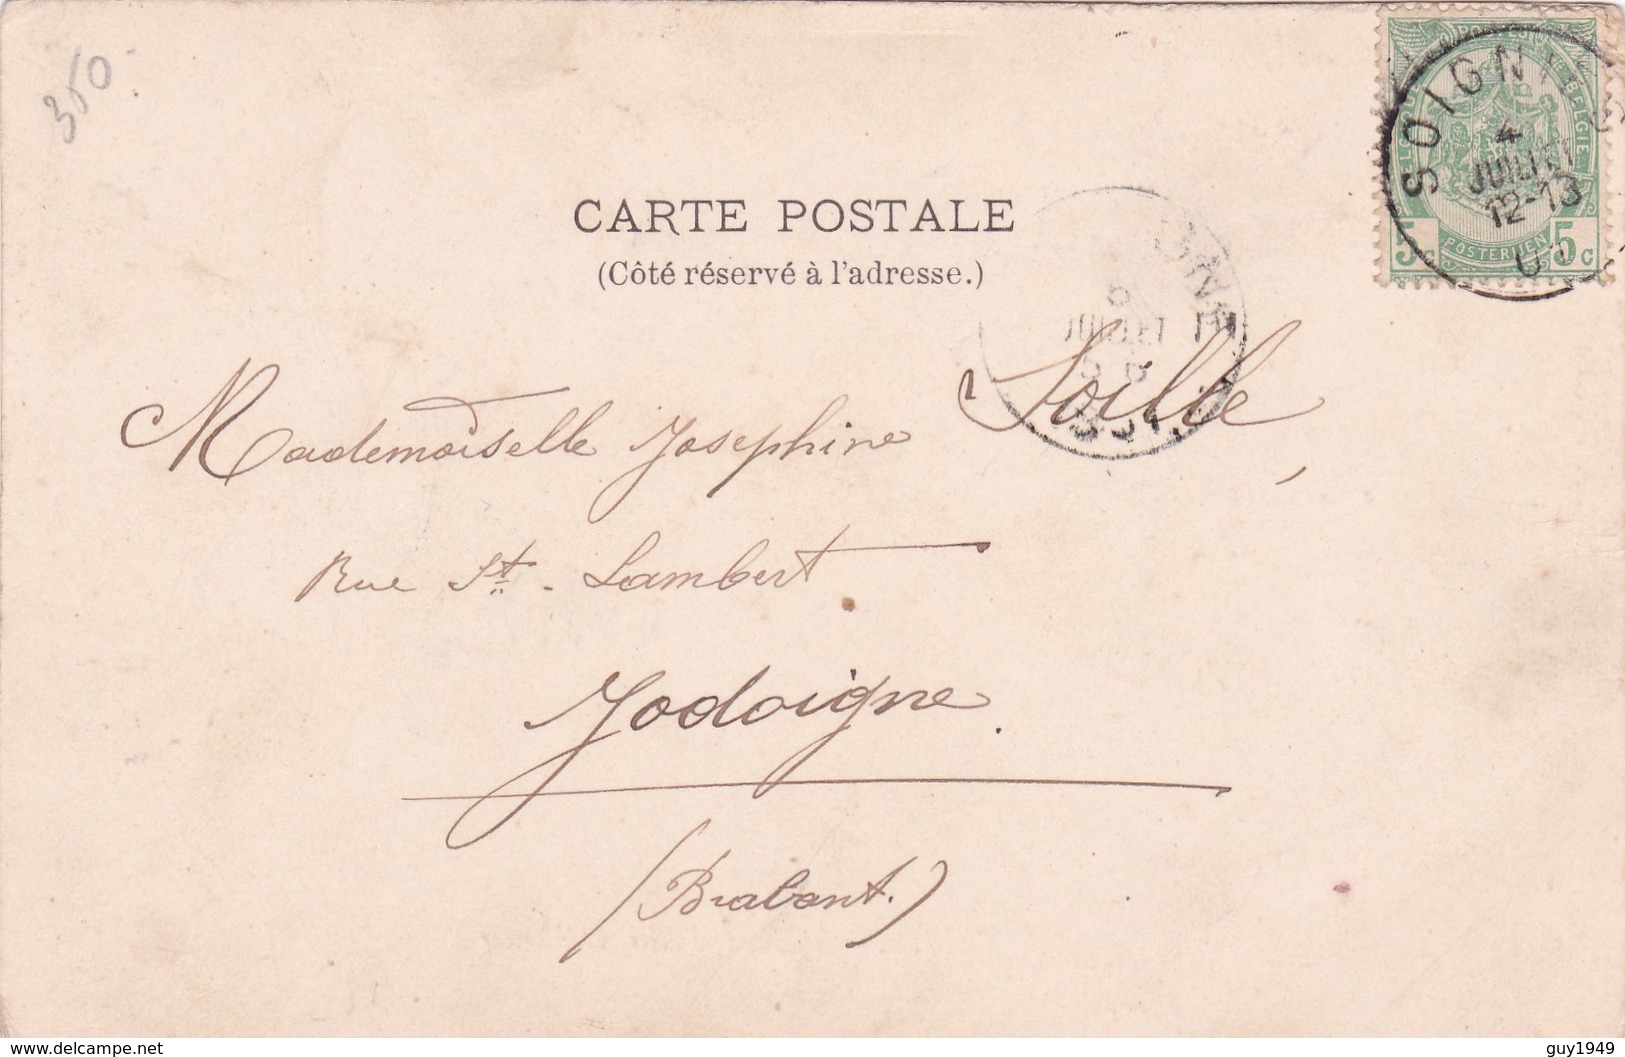 350.
SOIGNIES
4
JUILLET
12-13
POSTERIJEN
5c 5c
BELGIE
CARTE POSTALE
(Côté réservé à l'adresse.)
5
JUILLET
Mademoiselle Josephine Soille,
Rue St. Lambert
Jodoigne.
(Brabant.)
delcampe.net
guy1949